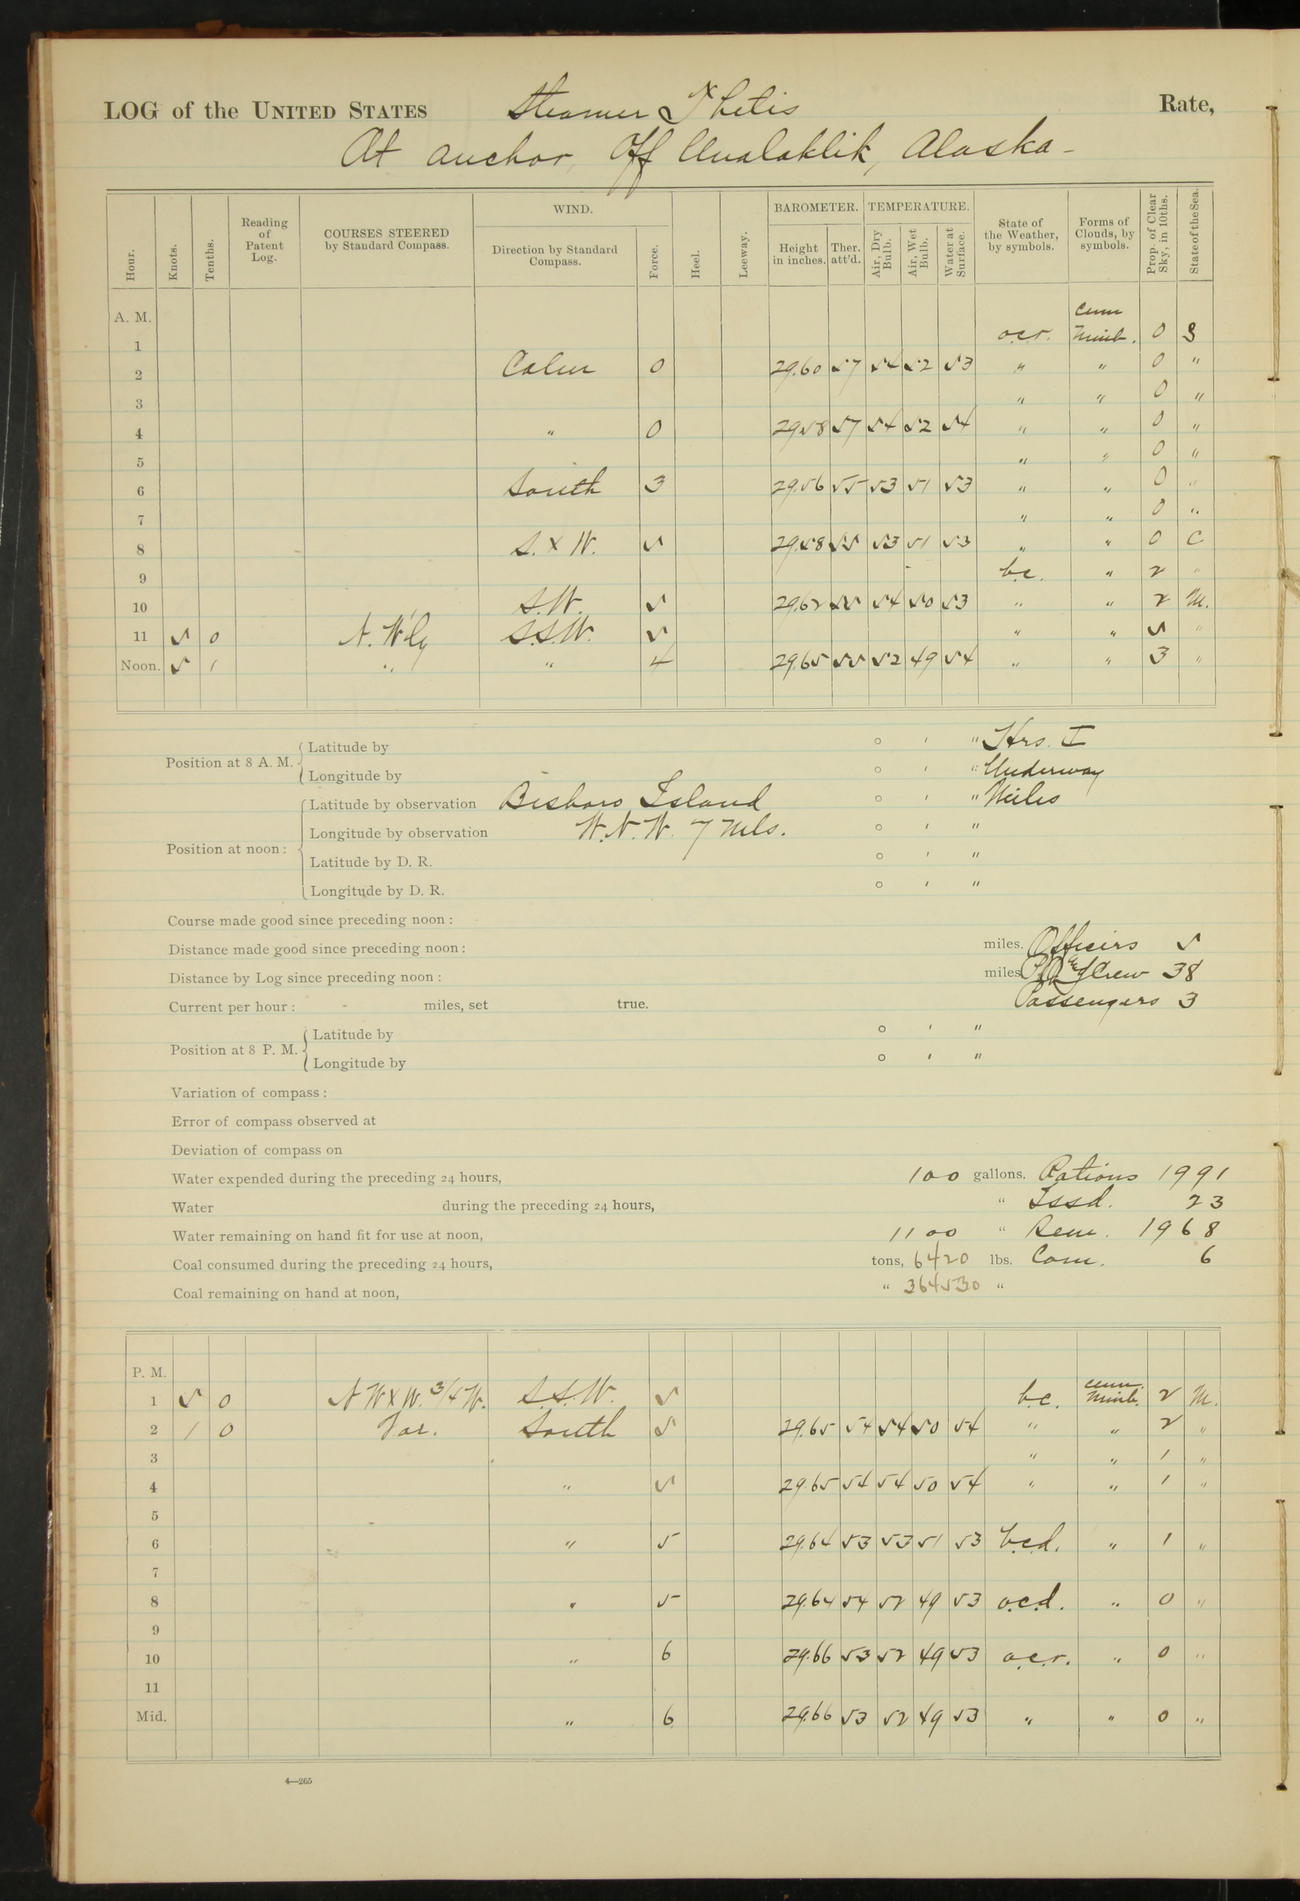 LOG of the UNITED STATES Steamer Thetis Rate,
At anchor, Off Unalaklik, Alaska -
Hour. Knots. Tenths. Reading of Patent Log. COURSES STEERED by Standard Compass. WIND. Direction by Standard Compass. Force. Heel. Leeway. BAROMETER. Height in inches. Ther. att'd. TEMPERATURE. Air, Dry Bulb. Air, Wet Bulb. Water at Surface. State of the Weather, by symbols. Forms of Clouds, by symbols. Prop. of Clear Sky, in 10ths. State of the Sea.
A. M. Cum
1 o.c.r. Nimb. 0 S
2 Calm 0 29.60 57 54 52 53 " " 0 "
3 " " 0 "
4 " 0 29.58 57 54 52 54 " " 0 "
5 " " 0 "
6 South 3 29.56 55 53 51 53 " " 0 "
7 " " 0 "
8 S. x W. 5 29.58 55 53 51 53 " " 0 C
9 b.c. " 2 "
10 S.W. 5 29.62 55 54 50 53 " " 2 M.
11 5 0 N. W'ly S.S.W. 5 " " 5 "
Noon. 5 1 " " 4 29.65 55 52 49 54 " " 3 "
Position at 8 A. M. Latitude by ° ' " Hrs. I
Longitude by ° ' " Underway
Position at noon: Latitude by observation Bisboro Island ° ' " Miles
Longitude by observation W.N.W. 7 Mls. ° ' "
Latitude by D. R. ° ' "
Longitude by D. R. ° ' "
Course made good since preceding noon:
Distance made good since preceding noon: miles. Officers 5
Distance by Log since preceding noon: miles Crew 38
Current per hour: miles, set true. Passengers 3
Position at 8 P. M. Latitude by ° ' "
Longitude by ° ' "
Variation of compass:
Error of compass observed at
Deviation of compass on
Water expended during the preceding 24 hours, 100 gallons. Rations 1991
Water during the preceding 24 hours, " Issd. 23
Water remaining on hand fit for use at noon, 1100 " Rem. 1968
Coal consumed during the preceding 24 hours, tons, 6420 lbs. Com. 6
Coal remaining on hand at noon, " 364530 "
P. M.
1 5 0 N W x W. 3/4 W. S.S.W. 5 b.c. cum. Nimb. 2 M.
2 1 0 Var. South 5 29.65 54 54 50 54 " " 2 "
3 " " 1 "
4 " 5 29.65 54 54 50 54 " " 1 "
5
6 " 5 29.64 53 53 51 53 b.c.d. " 1 "
7
8 " 5 29.64 54 52 49 53 o.c.d. " 0 "
9
10 " 6 29.66 53 52 49 53 o.c.r. " 0 "
11
Mid. " 6 29.66 53 52 49 53 " " 0 "
4—265